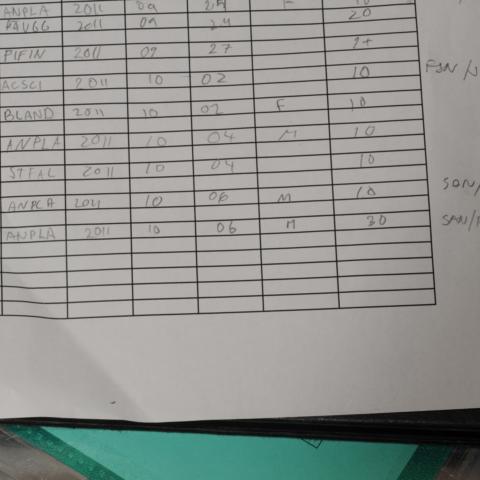 ANPLA 2011 09 24 F 10
PAVGG 2011 09 24 20
PIFIN 2011 09 27
ACSCI 2011 10 02 10
BLAND 2011 10 02 F 10
ANPLA 2011 10 04 M 10
STFAL 2011 10 04 10
ANPLA 2011 10 06 M 10 SAN/
ANPLA 2011 10 06 M 30 SAN/